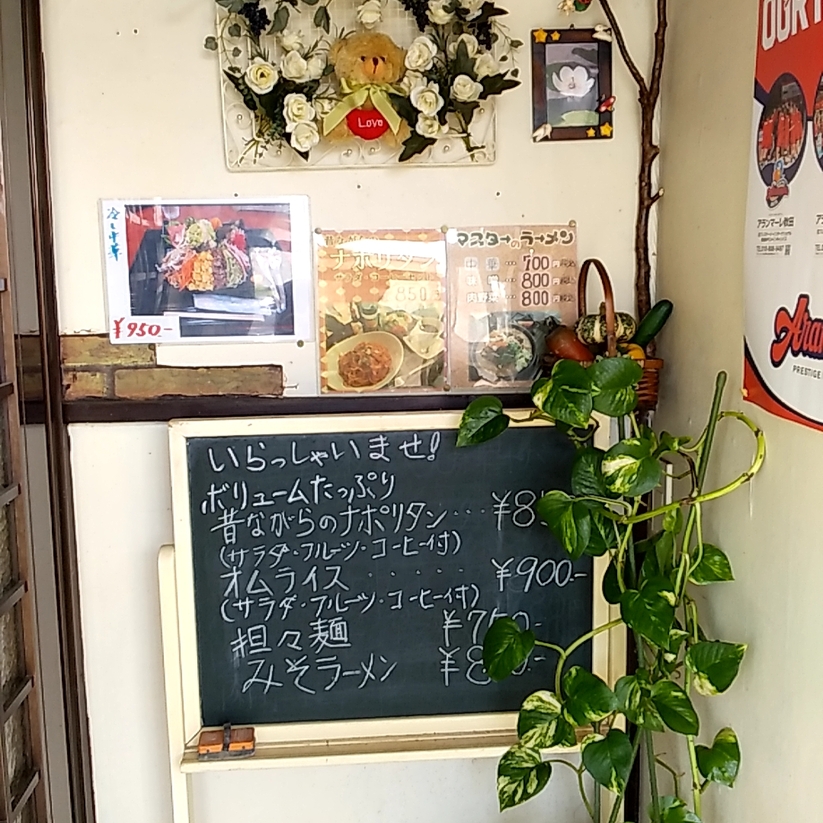 Love
冷し中華
¥950-
昔ながらの
ナポリタン
850
マスターのラーメン
中華…700円
800円
肉野菜…800円
いらっしゃいませ!
ボリュームたっぷり
昔ながらのナポリタン・・・¥85
(サラダ・フルーツ・コーヒー付)
オムライス・・・・・¥900-
(サラダ・フルーツ・コーヒー付)
担々麺 ¥750-
みそラーメン ¥8
アランマーレ秋田
PRESTIGE